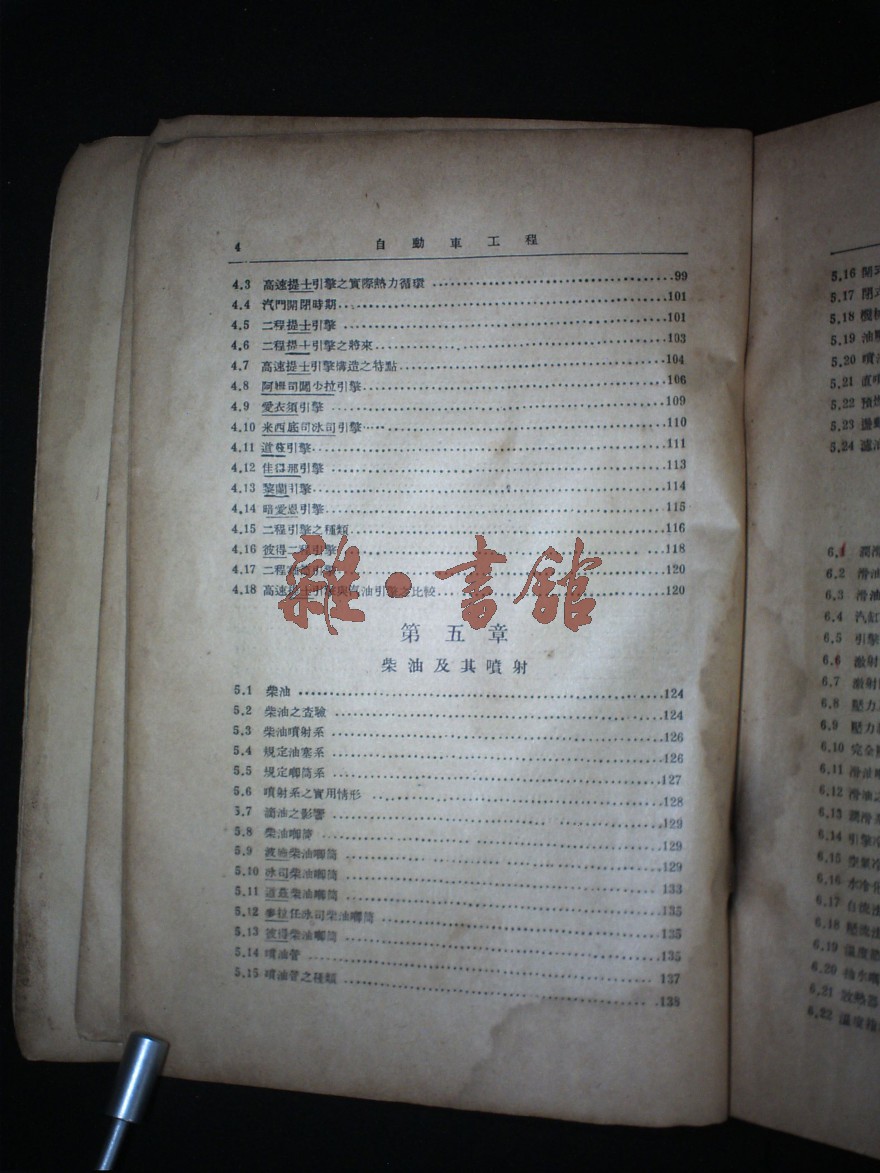 4 自動車工程
4.3 高速提士引擎之實際熱力循環 99
4.4 汽門開閉時期 101
4.5 二程提士引擎 101
4.6 二程提士引擎之將來 103
4.7 高速提士引擎構造之特點 104
4.8 阿姆司闖少拉引擎 106
4.9 愛衣須引擎 109
4.10 来西底司冰司引擎 110
4.11 道 引擎 111
4.12 佳 那引擎 113
4.13 黎蘭引擎 114
4.14 暗愛恩引擎 115
4.15 二程引擎之種類 116
4.16 彼得二程引擎 118
4.17 二程 引擎 120
4.18 高速提士引擎與汽油引擎之比較 120
雜·書館
第五章
柴油及其噴射
5.1 柴油 124
5.2 柴油之查驗 124
5.3 柴油噴射系 126
5.4 規定油塞系 126
5.5 規定唧筒系 127
5.6 噴射系之實用情形 128
5.7 滴油之影響 129
5.8 柴油唧筒 129
5.9 柴油唧筒 129
5.10 冰司柴油唧筒 133
5.11 道 柴油唧筒 135
5.12 參拉任冰司柴油唧筒 135
5.13 彼得柴油唧筒 135
5.14 噴油管 137
5.15 噴油管之種類 138
5.16 閉
5.17 閉
5.18 機
5.19 油
5.20 噴
5.21 直
5.22 預
5.23
5.24 濾油
6.1 潤滑
6.2 滑油
6.3 滑油
6.4 汽缸
6.5 引擎
6.6 激射
6.7 激射
6.8 壓力
6.9 壓力
6.10 完全
6.11 滑油
6.12 滑油之
6.13 潤滑
6.14 引擎冷
6.15 空氣冷
6.16 水冷
6.17 自流
6.18 壓流
6.19 溫度
6.20 抽水唧
6.21 放熱器
6.22 溫度